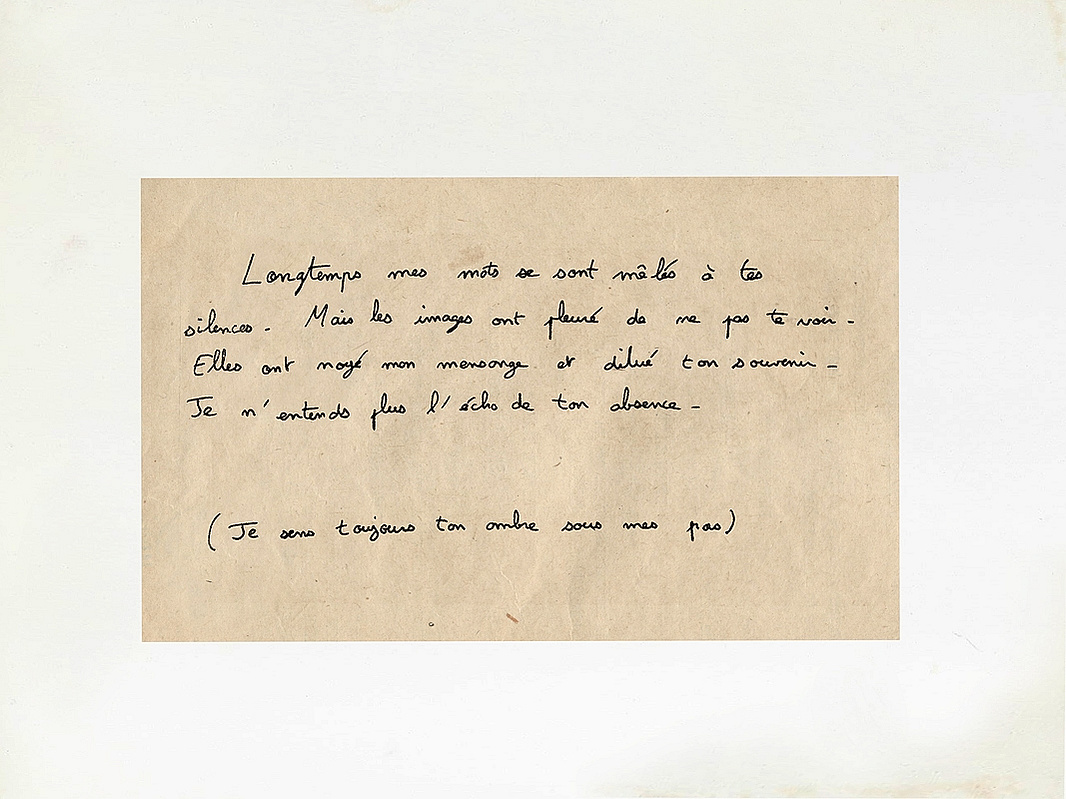 Longtemps mes mots se sont mêlés à tes
silences. Mais les images ont pleuré de ne pas te voir.
Elles ont noyé mon mensonge et dilué ton souvenir.
Je n'entends plus l'écho de ton absence.
(Je sens toujours ton ombre sous mes pas)